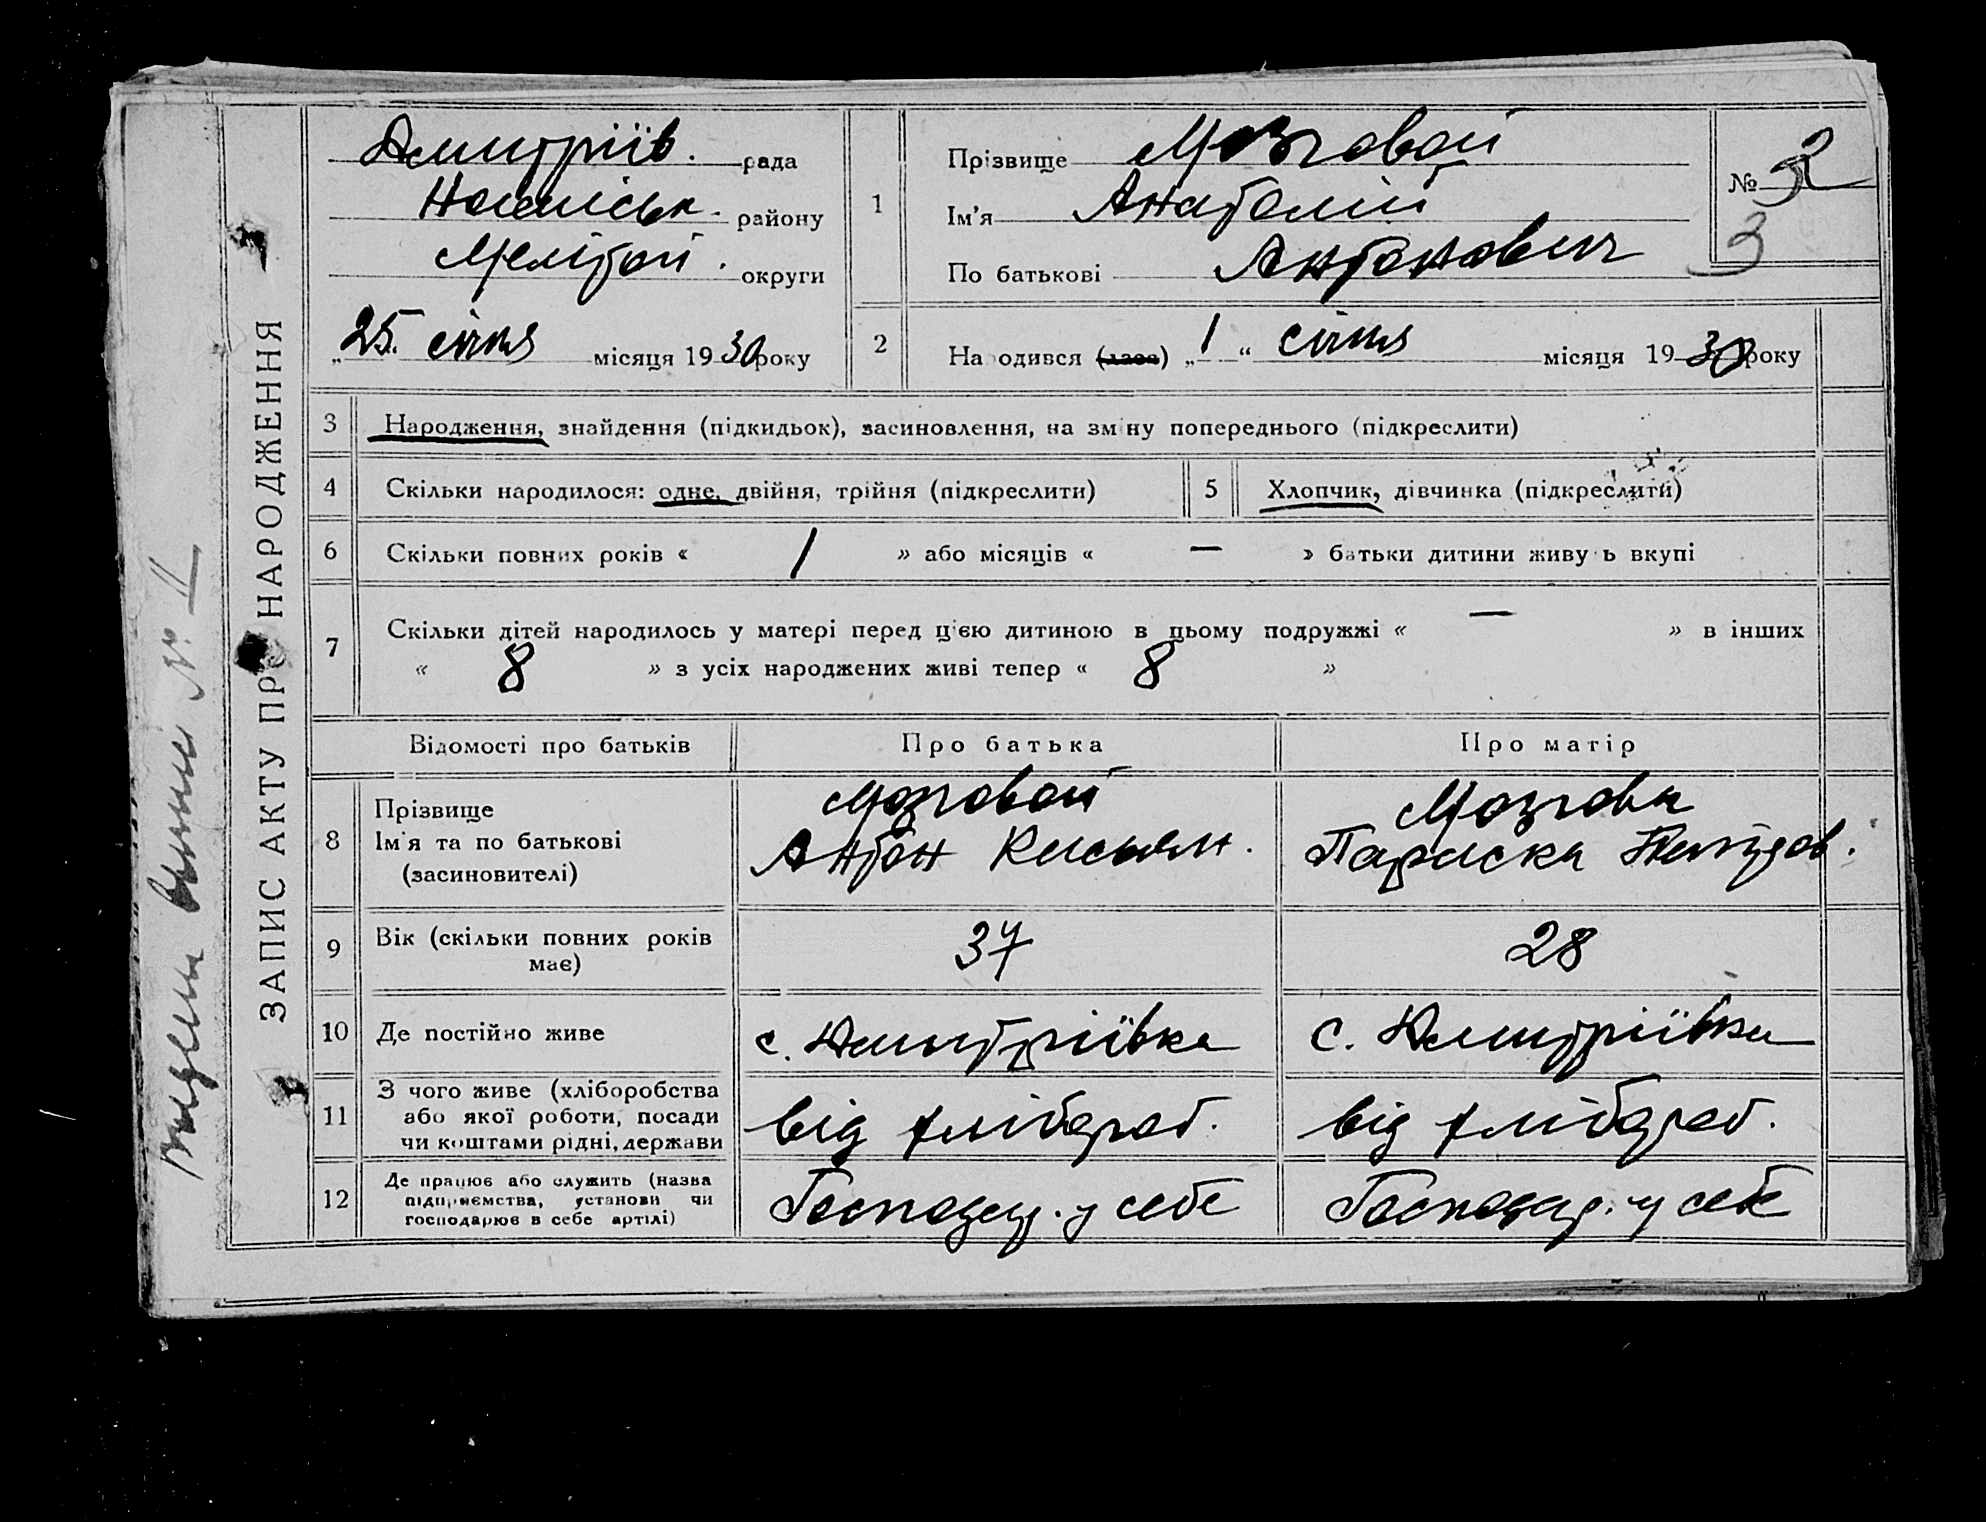 ЗАПИС АКТУ ПРО НАРОДЖЕННЯ
Дмитріїв. рада
району
Мелітоп. округи
„25“ січня місяця 1930 року
1
Прізвище Мозговой
Ім'я Анатолій
По батькові Антонович
№ 2
3
2
Народився (лася) „1“ січня місяця 1930 року
3 Народження, знайдення (підкидьок), засиновлення, на зміну попереднього (підкреслити)
4 Скільки народилося: одне, двійня, трійня (підкреслити)
5 Хлопчик, дівчинка (підкреслити)
6 Скільки повних років « 1 » або місяців « — » батьки дитини живуть вкупі
7 Скільки дітей народилось у матері перед цією дитиною в цьому подружжі « — » в інших
« 8 » з усіх народжених живі тепер « 8 »
Відомості про батьків Про батька Про матір
8 Прізвище
Ім'я та по батькові
(засиновителі)
Мозговой
Антон Касьян.
Мозгова
Параска
9 Вік (скільки повних років
має)
37
28
10 Де постійно живе
с. Дмитріївка
с. Дмитріївка
11 З чого живе (хліборобства
або якої роботи, посади
чи коштами рідні, держави
від хлібороб.
від хлібороб.
12 Де працює або служить (назва
підприємства, установи чи
господарює в себе артілі)
Господар. у себе
Господар. у себе